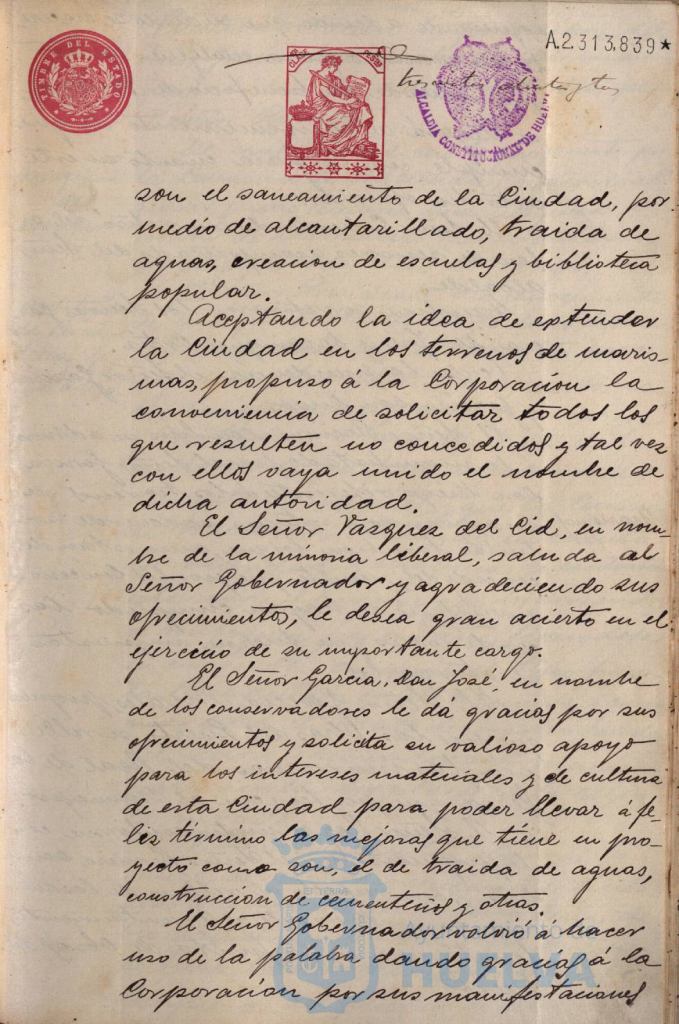 A.2.313,839*
TIMBRE DEL ESTADO
ALCALDIA CONSTITUCIONAL DE HUELVA
son el saneamiento de la Ciudad, por
medio de alcantarillado, traida de
aguas, creacion de escuelas y biblioteca
popular.
Aceptando la idea de extender
la Ciudad en los terrenos de maris-
mas, propuso á la Corporacion la
conveniencia de solicitar todos los
que resulten no concedidos y tal vez
con ellos vaya unido el nombre de
dicha autoridad.
El Señor Vazquez del Cid, en nom-
bre de la minoria liberal, saluda al
Señor Gobernador y agradeciendo sus
ofrecimientos, le desea gran acierto en el
ejercicio de su importante cargo.
El Señor Garcia, Don José, en nombre
de los conservadores le dá gracias por sus
ofrecimientos y solicita su valioso apoyo
para los intereses materiales y de cultura
de esta Ciudad para poder llevar á fe-
liz término las mejoras que tiene en pro-
yecto como son, el de traida de aguas,
construccion de cementerios y otras.
El Señor Gobernador volvió á hacer
uso de la palabra dando gracias á la
Corporacion por sus manifestaciones
HUELVA